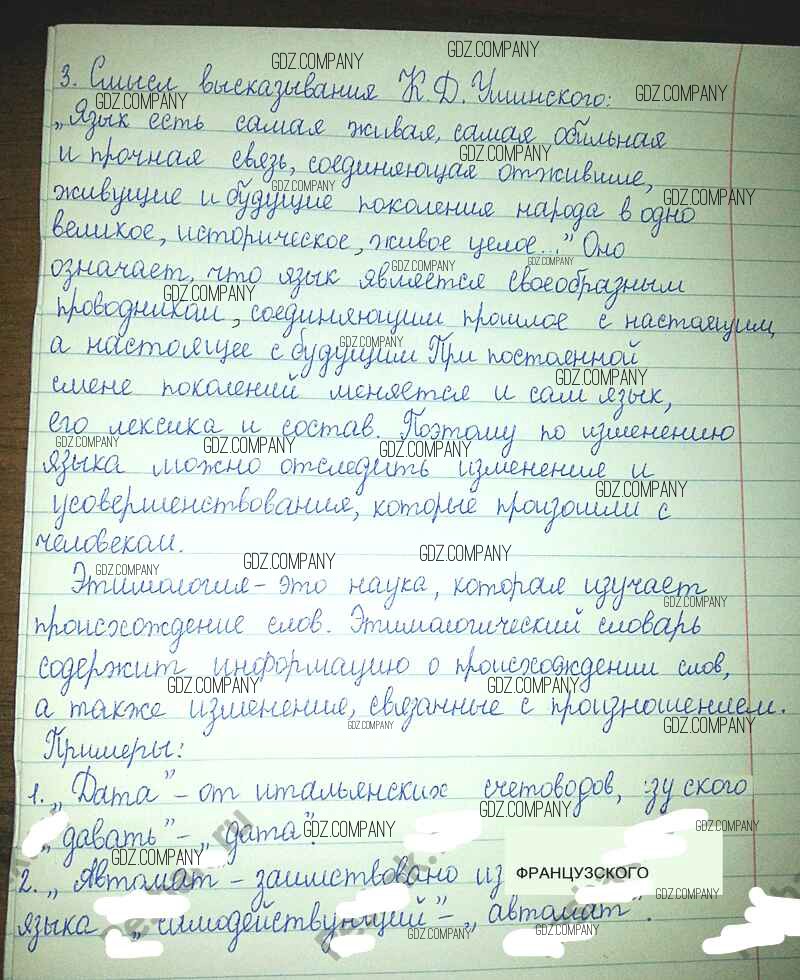 3. Смысл высказывания К.Д. Ушинского:
„Язык есть самая живая, самая обильная
и прочная связь, соединяющая отжившие,
живущие и будущие поколения народа в одно
великое, историческое, живое целое..." Оно
означает, что язык является своеобразным
проводником, соединяющим прошлое с настоящим,
а настоящее с будущим При постоянной
смене поколений меняется и сам язык,
его лексика и состав. Поэтому по изменению
языка можно отследить изменения и
усовершенствования, которые произошли с
человеком.
Этимология - это наука, которая изучает
происхождение слов. Этимологический словарь
содержит информацию о происхождении слов,
а также изменения, связанные с произношением.
Примеры:
1. „Дата" - от итальянских счетоводов, ского
„давать" - „дата".
2. „Автомат - заимствовано из ФРАНЦУЗСКОГО
языка „ - „автомат".
GDZ.COMPANY